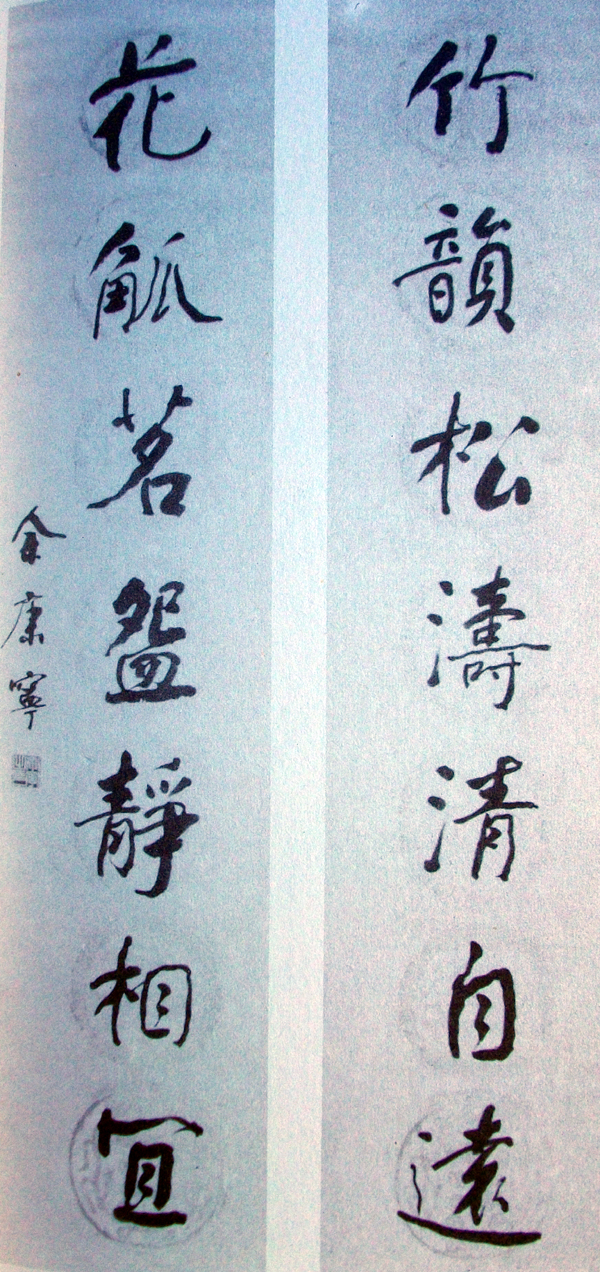 竹韻松濤清自遠
花觚茗盌靜相冝
余康寧